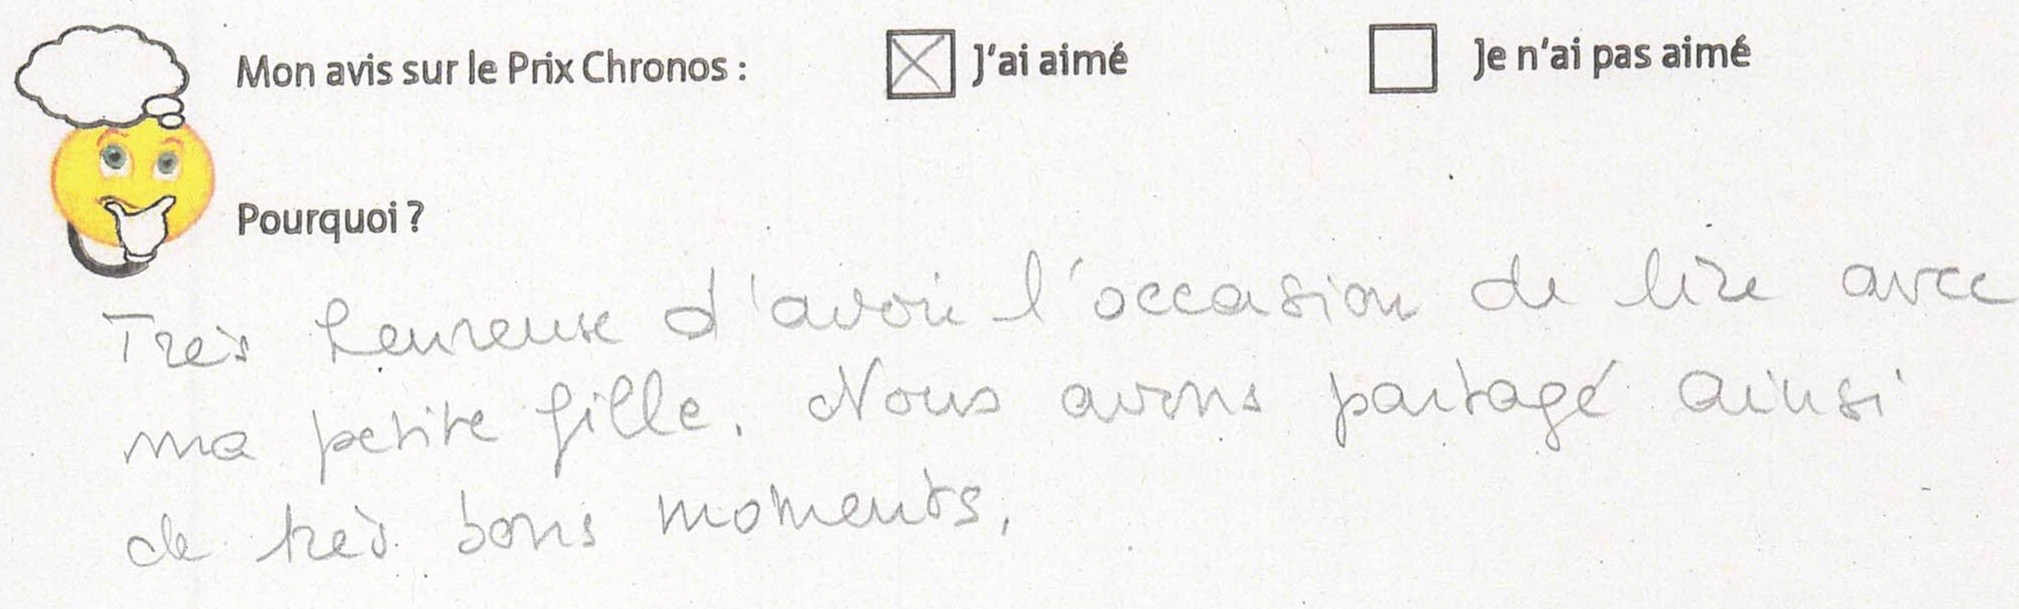 Mon avis sur le Prix Chronos : ☒ J'ai aimé ☐ Je n'ai pas aimé
Pourquoi ?
Très heureuse d'avoir l'occasion de lire avec
ma petite fille. Nous avons partagé ainsi
de très bons moments.